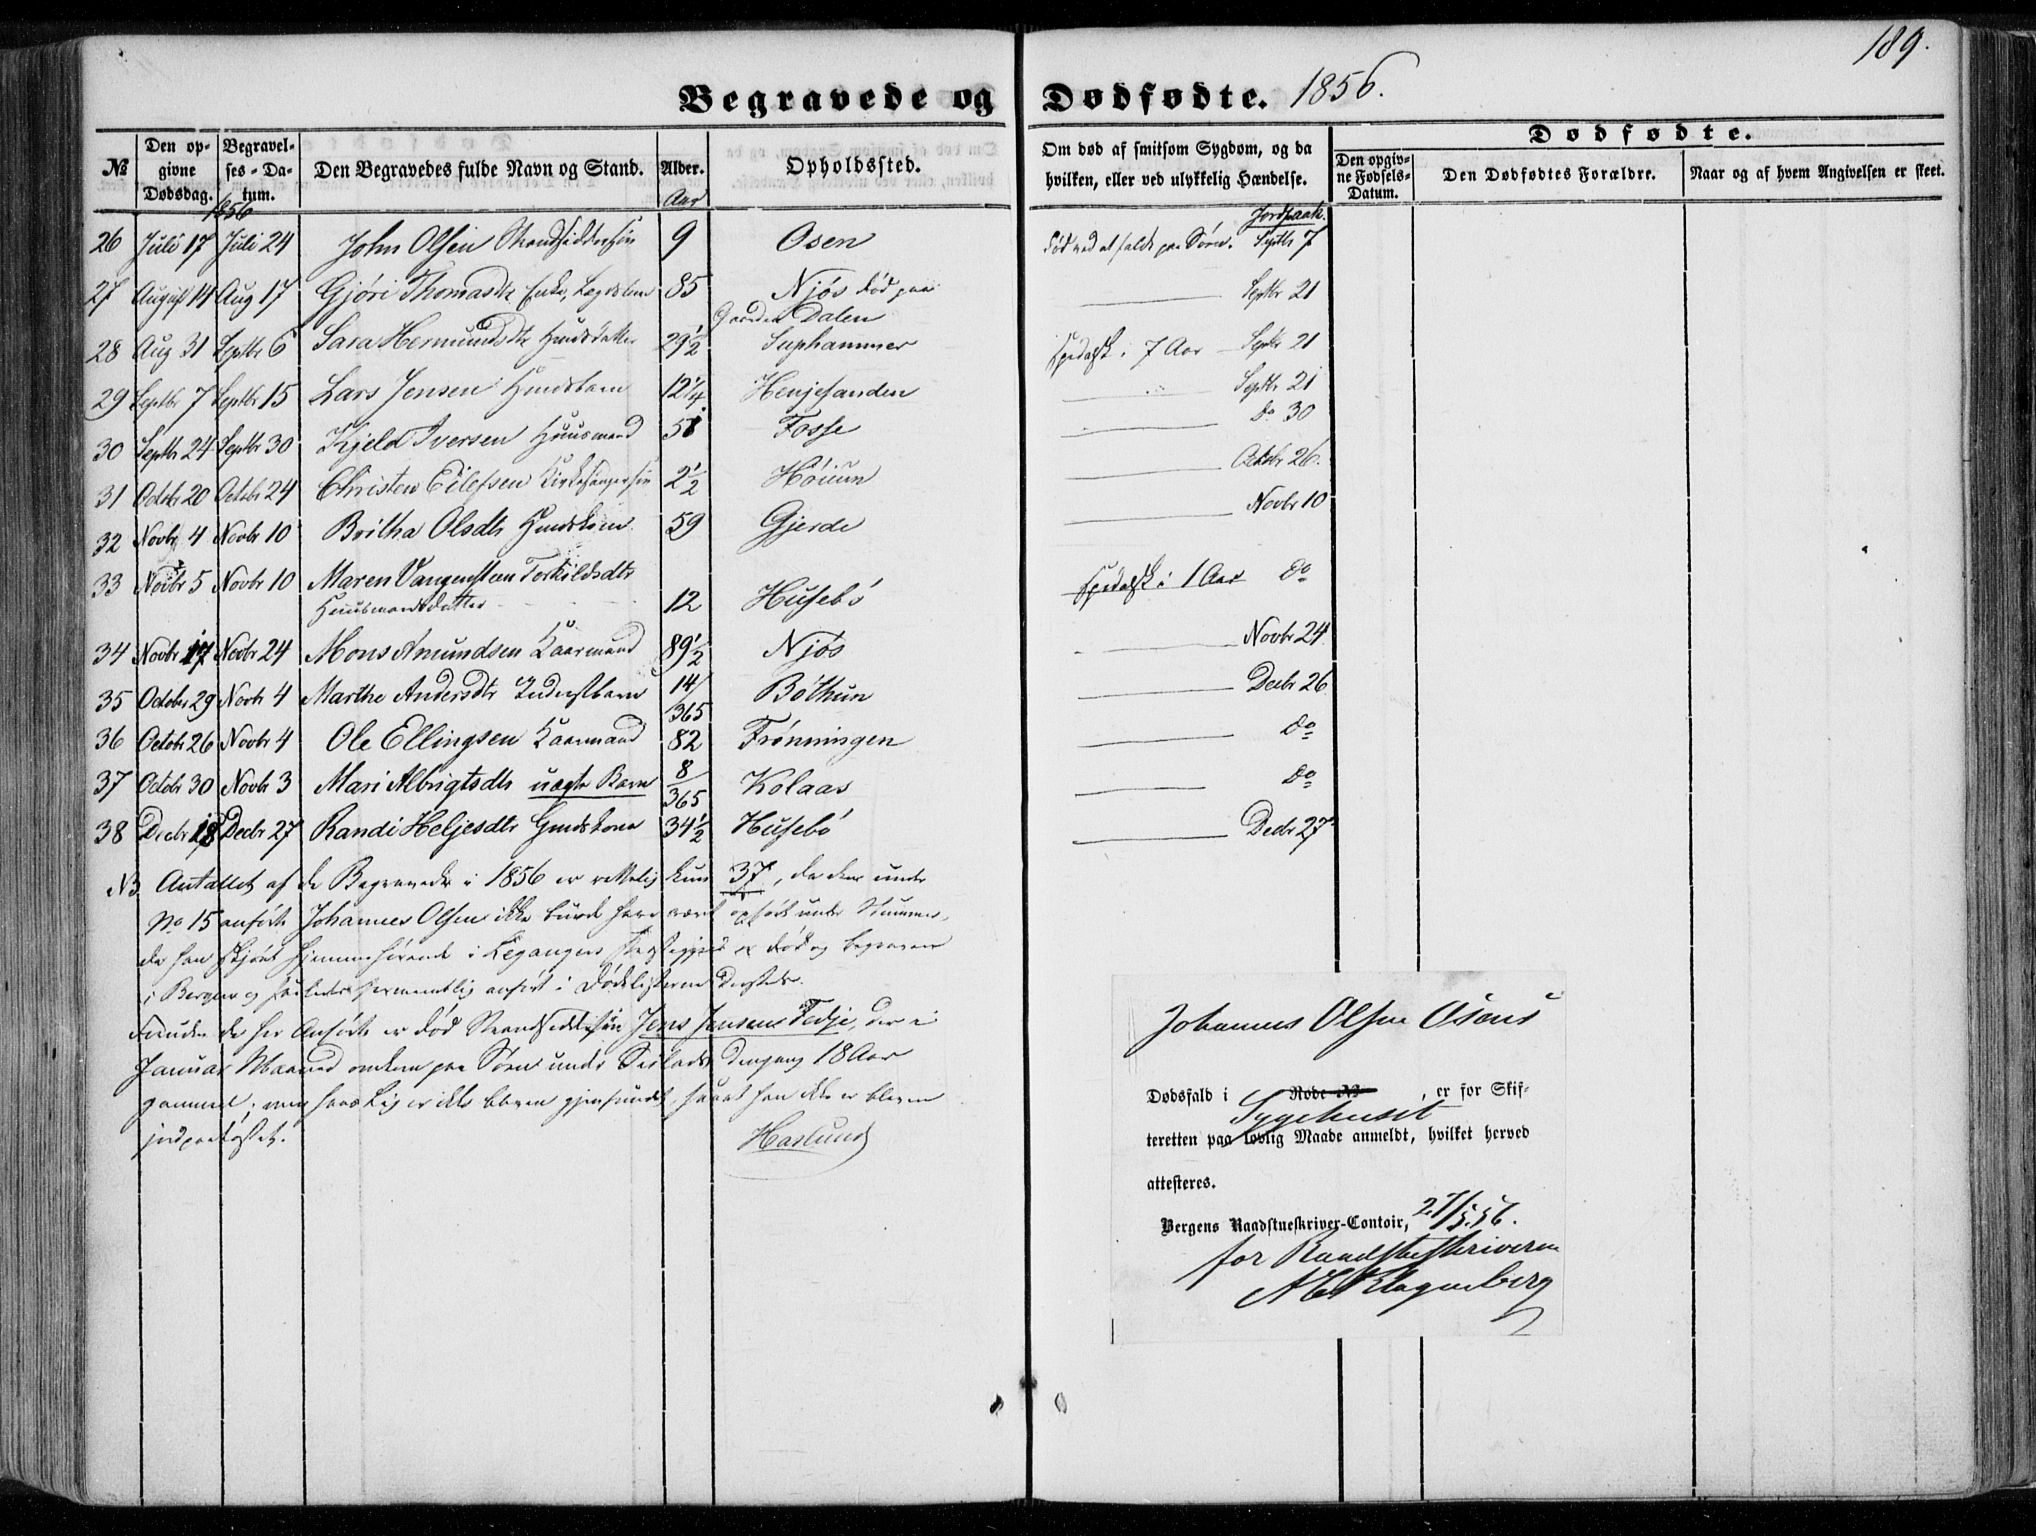 189.
Begravede og Dødfødte. 1856.
№ | Den opgivne Dødsdag. | Begravelses-Datum. | Den Begravedes fulde Navn og Stand. | Alder. | Opholdssted. | Om død af smitsom Sygdom, og da hvilken, eller ved ulykkelig Hændelse. | Dødfødte.
Den opgivne Fødsels-Datum. | Den Dødfødtes Forældre. | Naar og af hvem Angivelsen er skeet.
1856 Aar Jordpaak.
26 Juli 17 Juli 24 John Olsen Strandsiddersøn 9 Osen Død ved at falde paa Søen. Septbr 7
27 August 14 Aug 17 Gjøri Thomasdtr Enke, Lægdslem 85 Njøs død paa Gaarden Dalen Septbr 21
28 Aug 31 Septbr 6 Sara Hermundsdtr Huusdatter 29½ Suphammer Spedalsk i 7 Aar Septbr 21
29 Septbr 7 Septbr 15 Lars Jensen 12¼ Henjesanden Septbr 21
30 Septbr 24 Septbr 30 Kjeld Iversen Huusmand 58 Fosse do 30
31 Octobr 20 Octobr 24 Christen Eilefsen Kirkesangersøn 2½ Høium Octobr 26.
32 Novbr 4 Novbr 10 Britha Olsdtr 59 Gjerde Novbr 10
33 Novbr 5 Novbr 10 Maren Vangensteen Torkildsdtr
Huusmandsdatter 12 Husebø Spedalsk i 1 Aar do
34 Novbr 17 Novbr 24 Mons Amundsen Kaarmand 89½ Njøs Novbr 24
35 October 29 Novbr 4 Marthe Andersdtr Inderstbarn 14/365 Bøthun Decbr 26
36 Octobr 26 Novbr 4 Ole Ellingsen Kaarmand 82 Frønningen do
37 Octobr 30 Novbr 3 Mari Albrigtsdtr uægte Barn 8/365 Kolaas do
38 Decbr 18 Decbr 27 Randi Heljesdtr Gaardskone 34½ Husebø Decbr 27
NB Antallet af de Begravede i 1856 er rettelig kun 37, da den under
No 15 anførte Johannes Olsen ikke burde have været opført under Nummer,
da han skjønt hjemmehørende i Leganger Præstegjeld er død og begraven
i Bergen og saaledes formentlig anført i Dødslisterne dersteds.
Foruden de her Anførte er død Strandsiddersøn Jens Jensen Fedje, der i
Januar Maaned omkom paa Søen under dengang 18 Aar
gammel; men hans Lig er ikke bleven gjenfundet, saa at han ikke er bleven
jordpaakastet.
Haslund
Johannes Olsen Osens
Dødsfald i Rode № Sygehuset, er for Skif-
teretten paa lovlig Maade anmeldt, hvilket herved
attesteres.
Bergens Raadstueskriver-Contoir, 27/5.56.
for Raadstueskriveren
Klagenberg